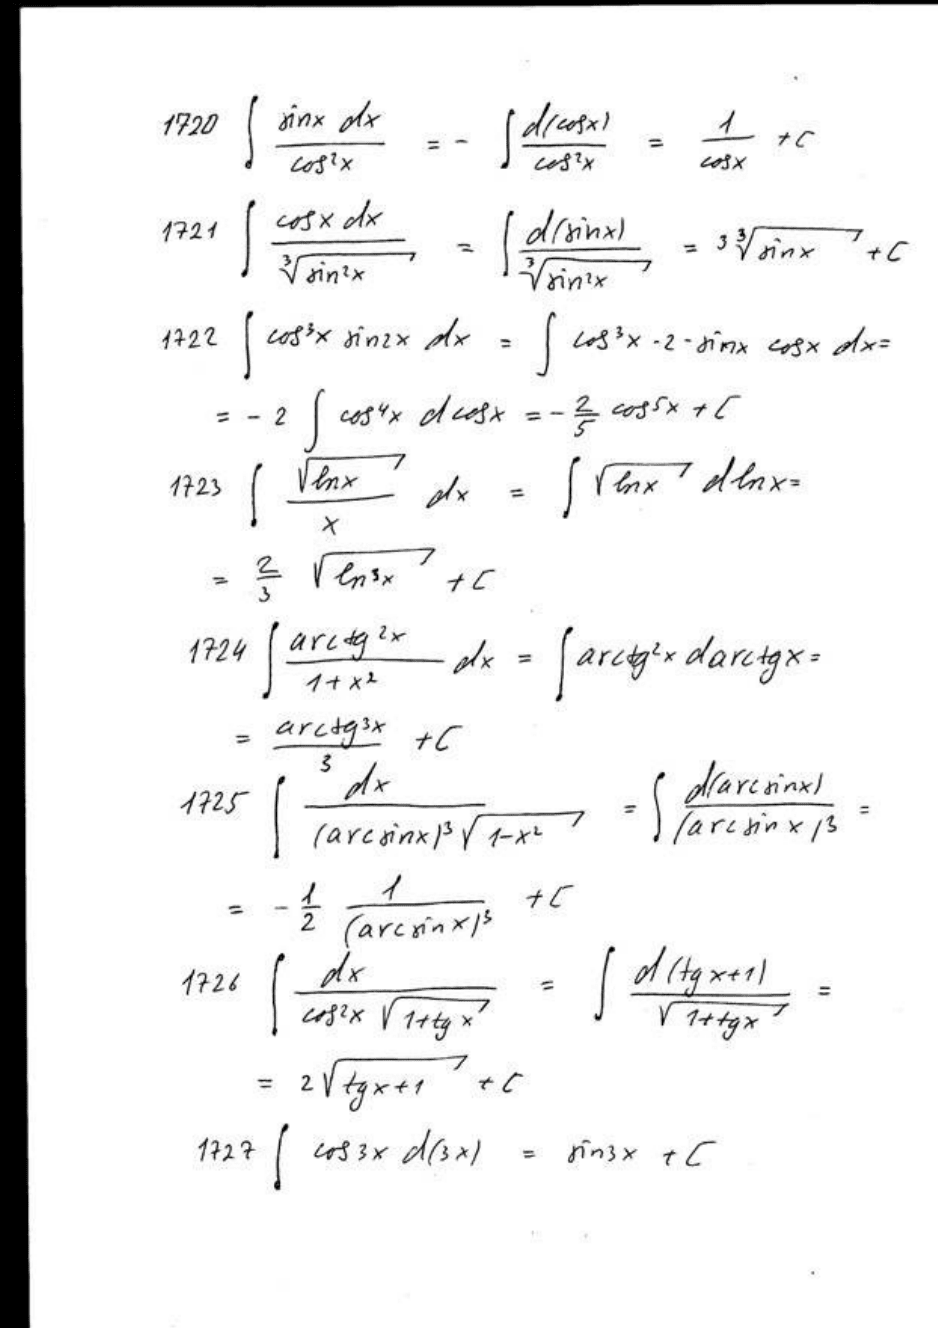 1720 ∫ sinx dx / cos²x = - ∫ d(cosx) / cos²x = 1 / cosx + C
1721 ∫ cosx dx / ∛(sin²x) = ∫ d(sinx) / ∛(sin²x) = 3 ∛(sinx) + C
1722 ∫ cos³x sin2x dx = ∫ cos³x · 2 · sinx cosx dx =
= - 2 ∫ cos⁴x d cosx = - 2/5 cos⁵x + C
1723 ∫ √(lnx) / x dx = ∫ √(lnx) d lnx =
= 2/3 √(ln³x) + C
1724 ∫ arctg²x / 1+x² dx = ∫ arctg²x darctgx =
= arctg³x / 3 + C
1725 ∫ dx / (arcsinx)³ √(1-x²) = ∫ d(arcsinx) / (arcsin x)³ =
= - 1/2 1 / (arcsinx)³ + C
1726 ∫ dx / cos²x √(1+tgx) = ∫ d(tgx+1) / √(1+tgx) =
= 2√(tgx+1) + C
1727 ∫ cos3x d(3x) = sin3x + C